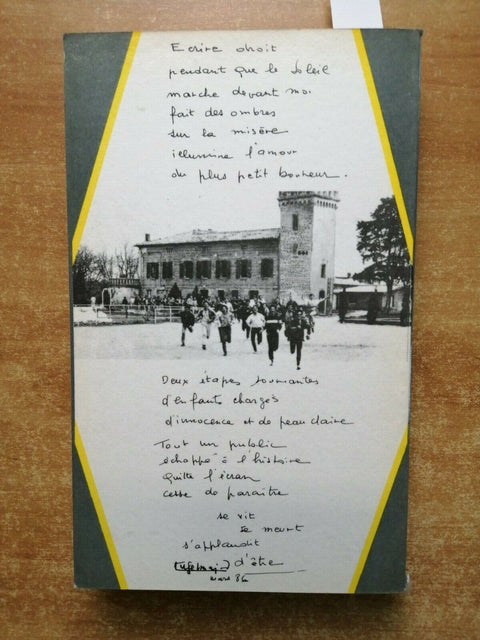 Ecrire droit
pendant que le soleil
marche devant moi
fait des ombres
sur la misère
illumine l'amour
du plus petit bonheur.
Deux étapes souriantes
d'enfants chargés
d'innocence et de peau claire
Tout un public
échappé à l'histoire
quitte l'écran
cesse de paraître
se vit
se meurt
s'applaudit
d'être
mars 86